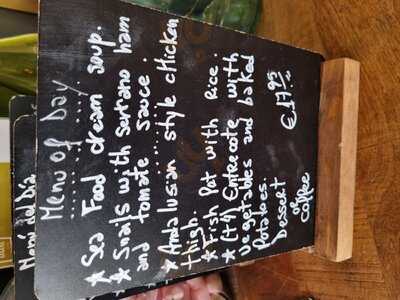 Menu of Day
★ Sea Food cream soup.
★ Snails with serrano ham
and tomate sauce.
★ Andalusian style chicken
thigh.
★ Fish Pat with Rice.
★ (+4) Entrecote with
vegetables and baked
Potatoes.
Dessert
or
coffee
€ 17.95
Menú del Día